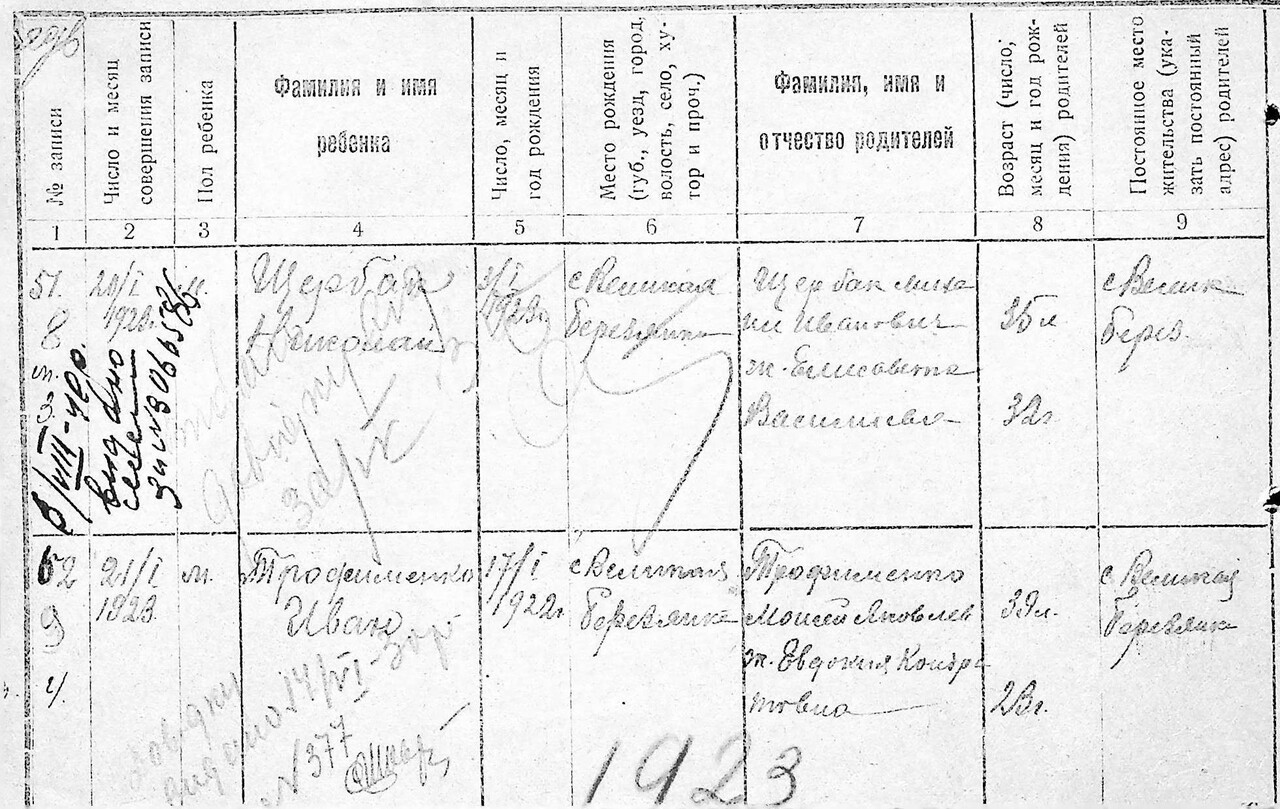 № записи
Число и месяц
совершения записи
Пол ребенка
Фамилия и имя
ребенка
Число, месяц и
год рождения
Место рождения
(губ., уезд, город,
волость, село, ху-
тор и проч.)
Фамилия, имя и
отчество родителей
Возраст (число,
месяц и год рож-
дения) родителей
Постоянное место
жительства (ука-
зать постоянный
адрес) родителей
1 2 3 4 5 6 7 8 9
51.
8
м.
21/I
1923г.
м.
Щербак
Николай
3/I
1923г.
с Великая
Березянка
Щербак Миха
ил Иванович
ж. Елисавета
Васильевна
35 л
32г.
с Велик
Берез.
8/VIII-40р.
видано
52
9
ч.
21/I
1923.
м.
Трофименко
Иван
17/I
1922г.
с Великая
Березянка
Трофименко
Моисей Яковлев
ж. Евдокия Кондра
товна
39л.
23г.
с Великая
Березянка
видано 14/VI-30р
№377
1923